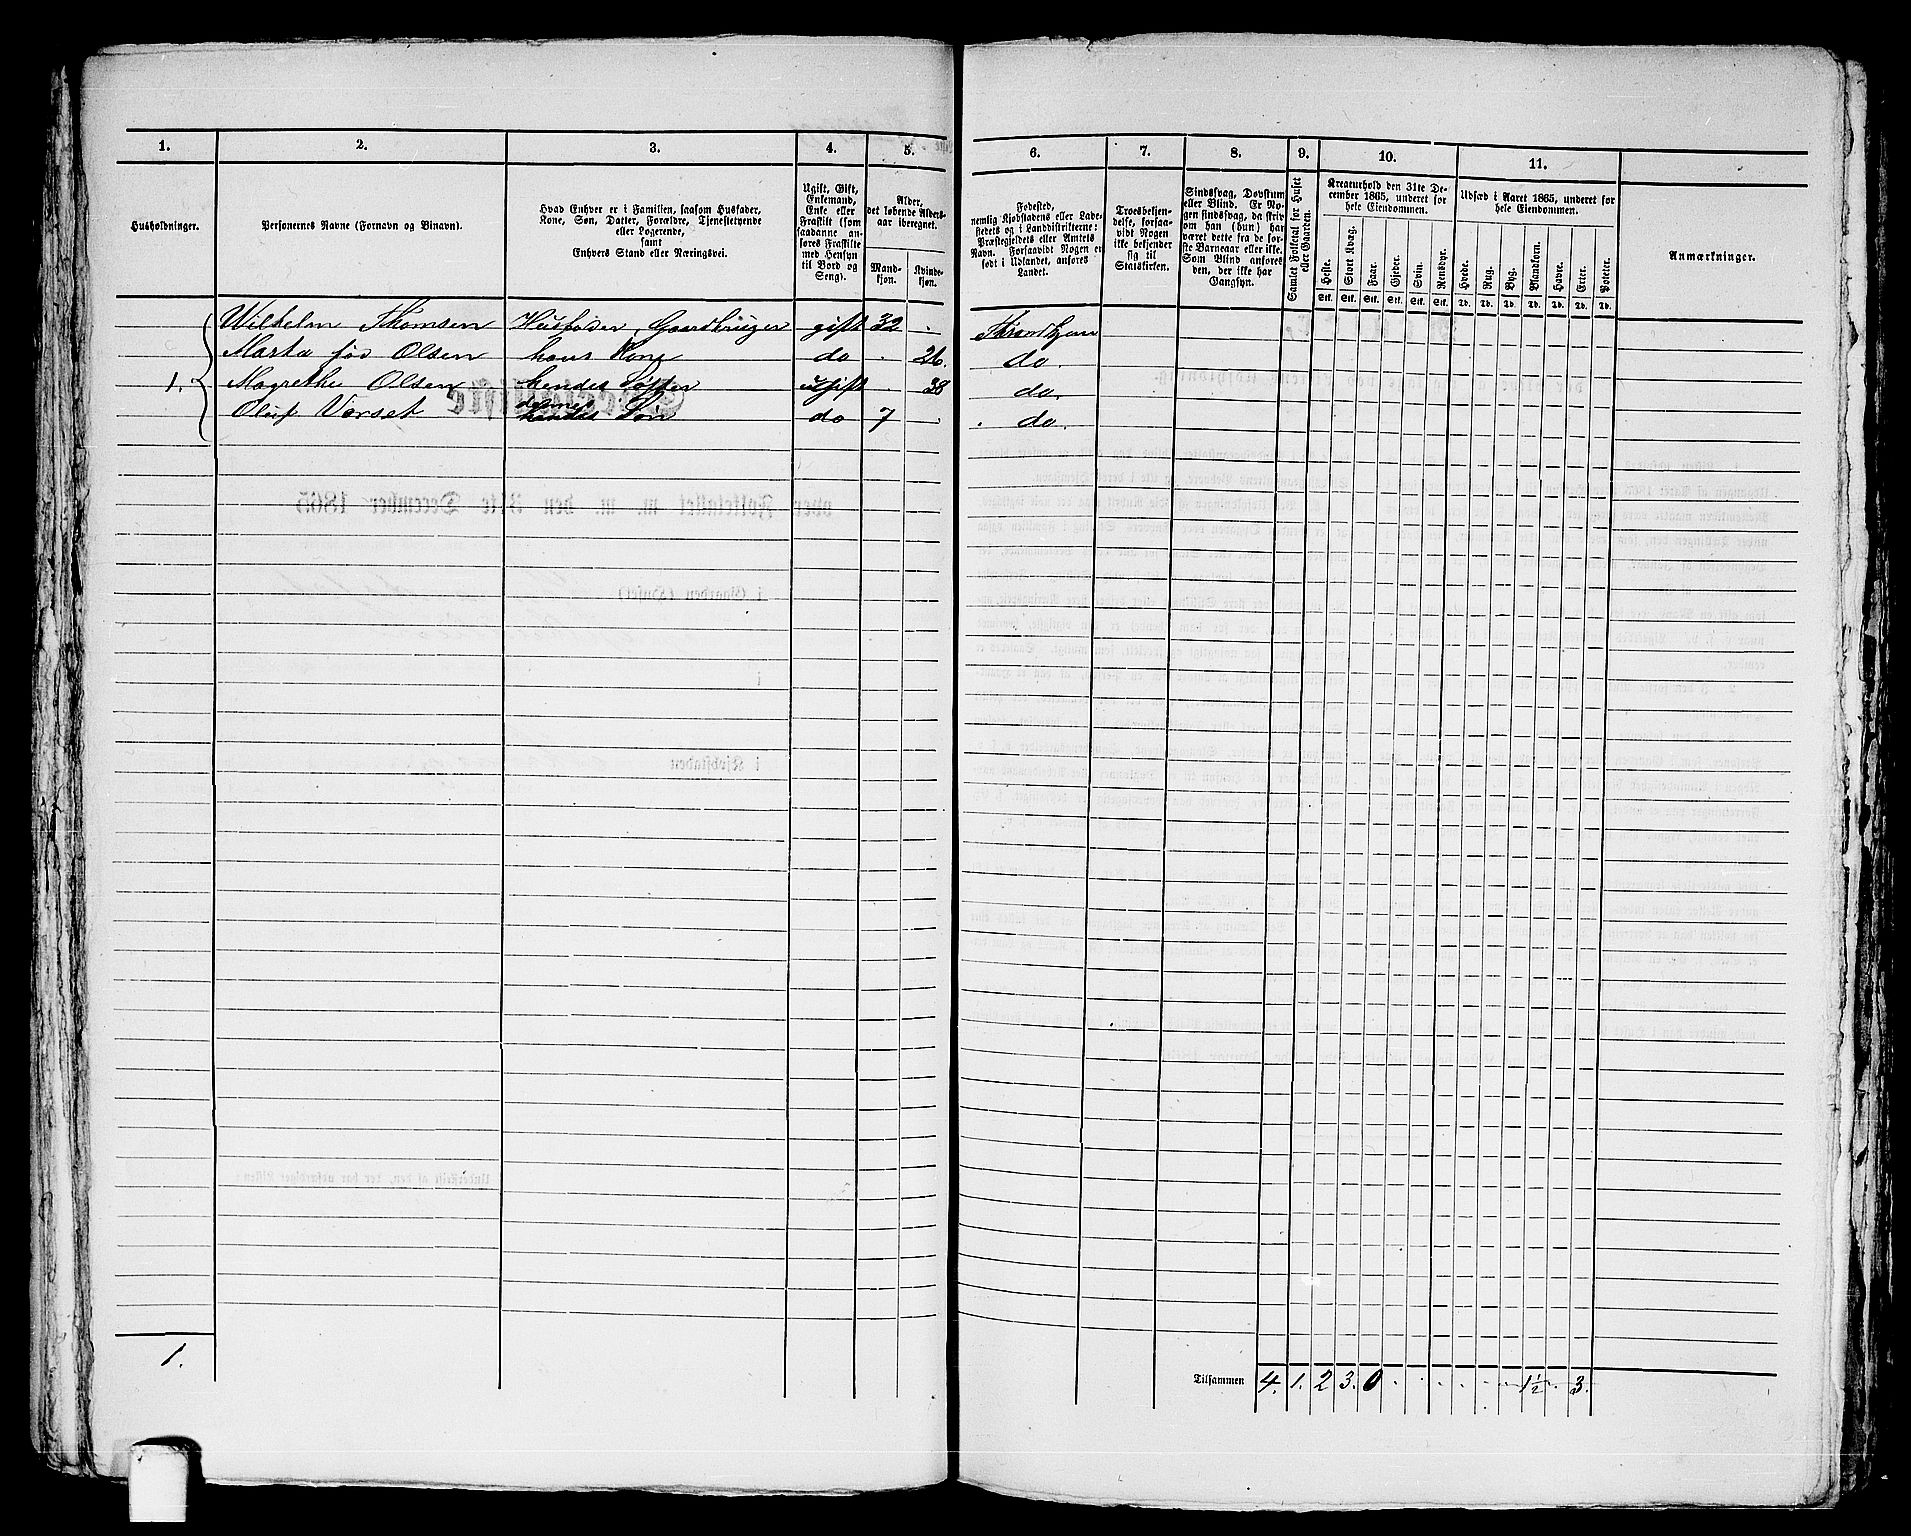 1. 2. 3. 4. 5. 6. 7. 8. 9. 10. 11.
Husholdninger.
Personernes Navne (Fornavn og Binavn).
Hvad Enhver er i Familien, saasom Husfader,
Kone, Søn, Datter, Forældre, Tjenestetyende
eller Logerende,
samt
Enhvers Stand eller Næringsvei.
Ugift, Gift,
Enkemand,
Enke eller
Fraskilt (som
saadanne an-
føres Fraskilte
med Hensyn
til Bord og
Seng).
Alder,
det løbende Alders-
aar iberegnet.
Mand-
kjøn.
Kvinde-
kjøn.
Fødested,
nemlig Kjøbstadens eller Lade-
stedets og i Landdistrikterne:
Præstegjeldets eller Amtets
Navn. Forsaavidt Nogen er
født i Udlandet, anføres
Landet.
Troesbekjen-
delse, forsaa-
vidt Nogen
ikke bekjender
sig til
Statskirken.
Sindssvag, Døvstum
eller Blind. Er No-
gen sindssvag, da skriv
om han (hun) har
været dette fra de før-
ste Barneaar eller ikke.
Som Blind anføres
den, der ikke har
Gangsyn.
Samlet Folketal for Huset
eller Gaarden.
Kreaturhold den 31te De-
cember 1865, underet for
hele Eiendommen.
Heste. Stort Kvæg. Faar. Gjeder. Svin. Rensdyr.
Stk. Stk. Stk. Stk. Stk. Stk.
Udsæd i Aaret 1865, underet for
hele Eiendommen.
Hvede. Rug. Byg. Blandkorn. Havre. Erter. Poteter.
Td. Td. Td. Td. Td. Td. Td.
Anmærkninger.
Wilhelm Thomsen Husfader, Gaardbruger gift 32 . Throndhjem
Marta fød Olsen hans Kone do . 26. do.
1. Magrethe Olsen hendes Søster ugift . 38 do.
Oluf Vorset dennes Søn do 7 . do.
1.
Tilsammen 4. 1. 2 3. 0 . . . . . . 1½. 3.